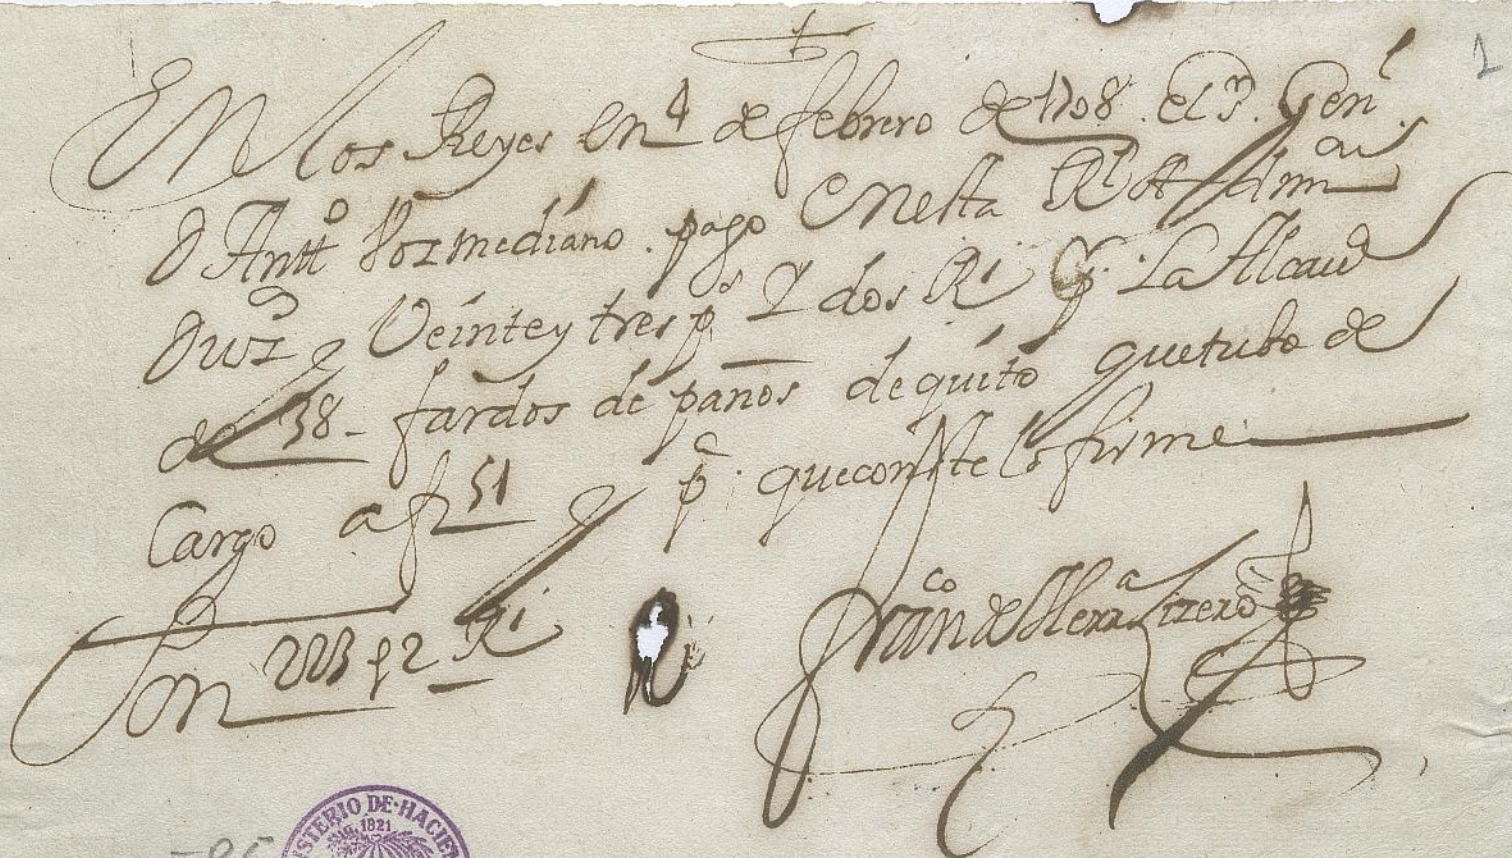 1
En los Reyes en 4 de febrero de 1708. el sr. Genl.
D Antto Pozmediano. pago en esta Rl Admn
Veinte y tres ps Y dos Rs la Alcavd
de 38- fardos de paños de quito que tubo de
Cargo a fz 51 pa. que conste lo firme
Son 223 p 2 Rs
Franco de
MINISTERIO DE HACIEN
1821